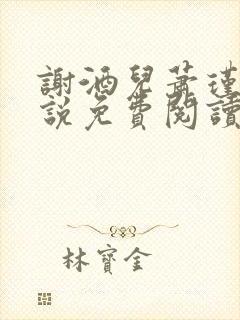 謝酒兒蕭瑾
說免費閱讀
林寶金